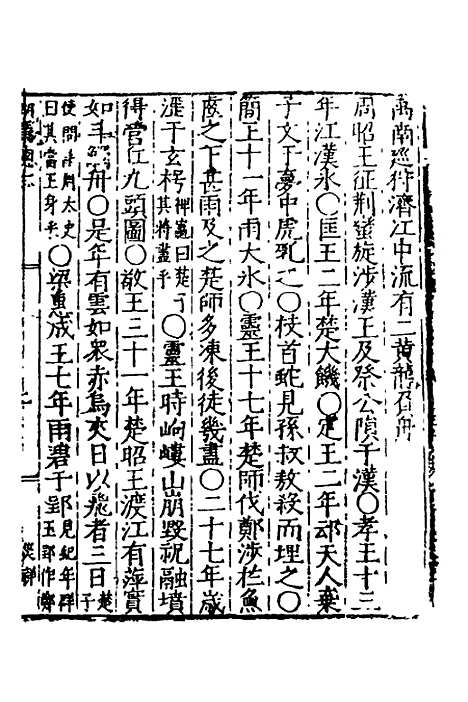 禹南廵狩濟江中流有二黄龍負舟
周昭王征荆蠻旋涉漢王及祭公隕于漢〇孝王十三
年江漢氷〇匡王二年楚大饑〇定王二年䢵夫人棄
子文于夢中虎乳之〇枝首蛇見孫叔敖殺而埋之〇
簡王十一年雨大氷〇靈王十七年楚師伐鄭涉於魚
齒之下甚雨及之楚師多凍役徒幾盡〇二十七年歲
淫于玄枵裨竈曰楚子其將盡乎〇靈王時岣嶁山崩毀祝融墳
得營丘九頭圖〇敬王三十一年楚昭王渡江有萍實
如斗觸舟〇是年有雲如衆赤烏夾日以飛者三日楚子
使問諸周太史曰其當王身乎〇梁惠成王七年雨碧于郢見紀年郡國志郢作
災祥